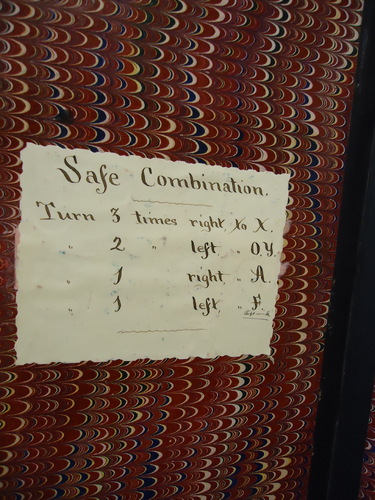 Safe Combination.
Turn 3 times right to X.
" 2 " left " O.Y.
" 1 right " A.
" 1 left " F.